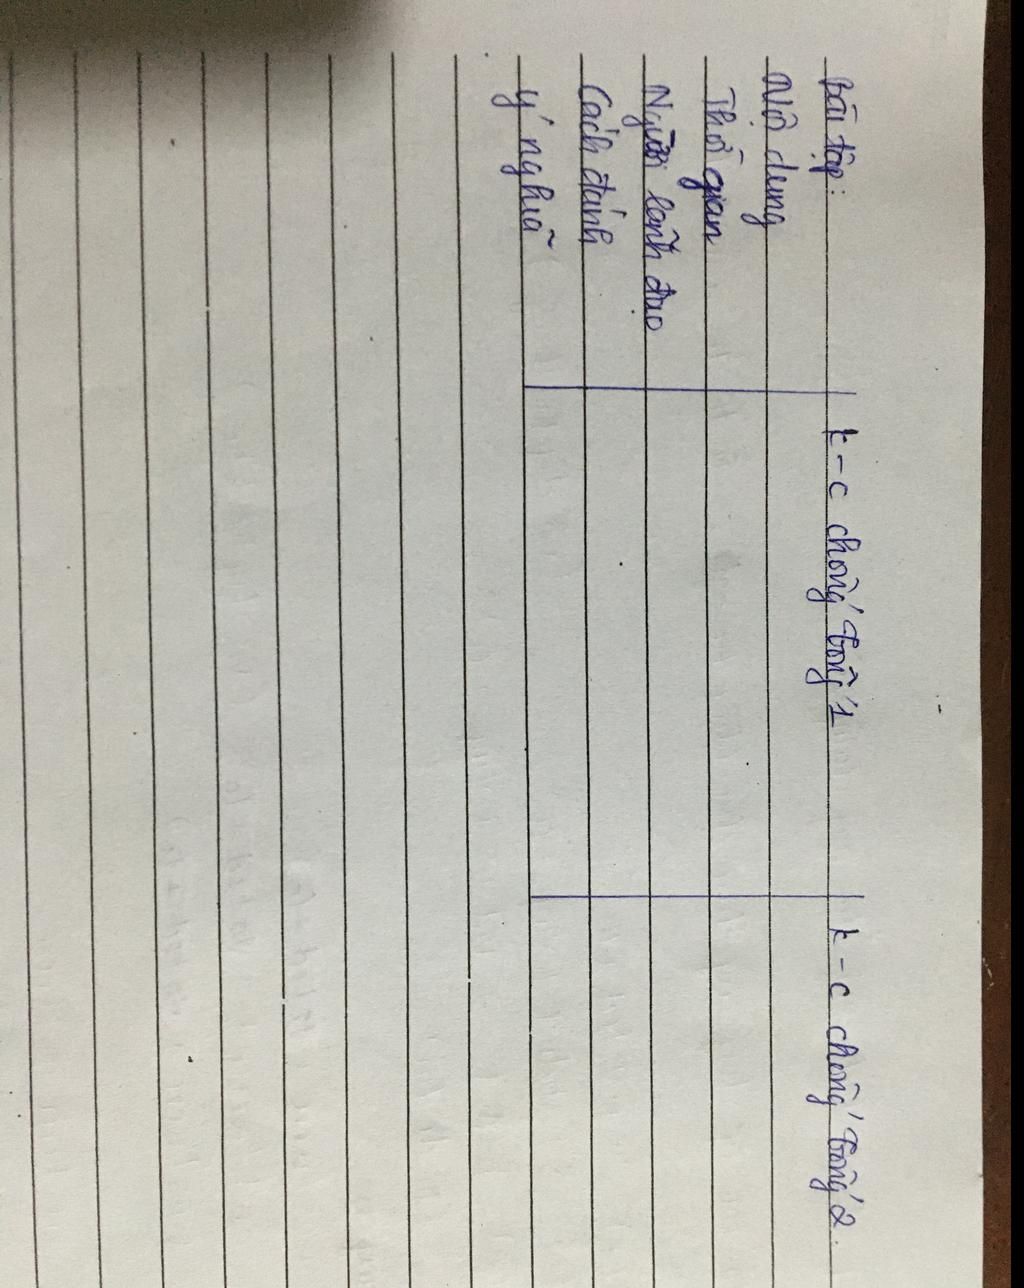 Bài tập: k-c chống Tống 1 k-c chống Tống 2.
Nội dung
Thời gian
Người lãnh đạo
Cách đánh
ý nghĩa